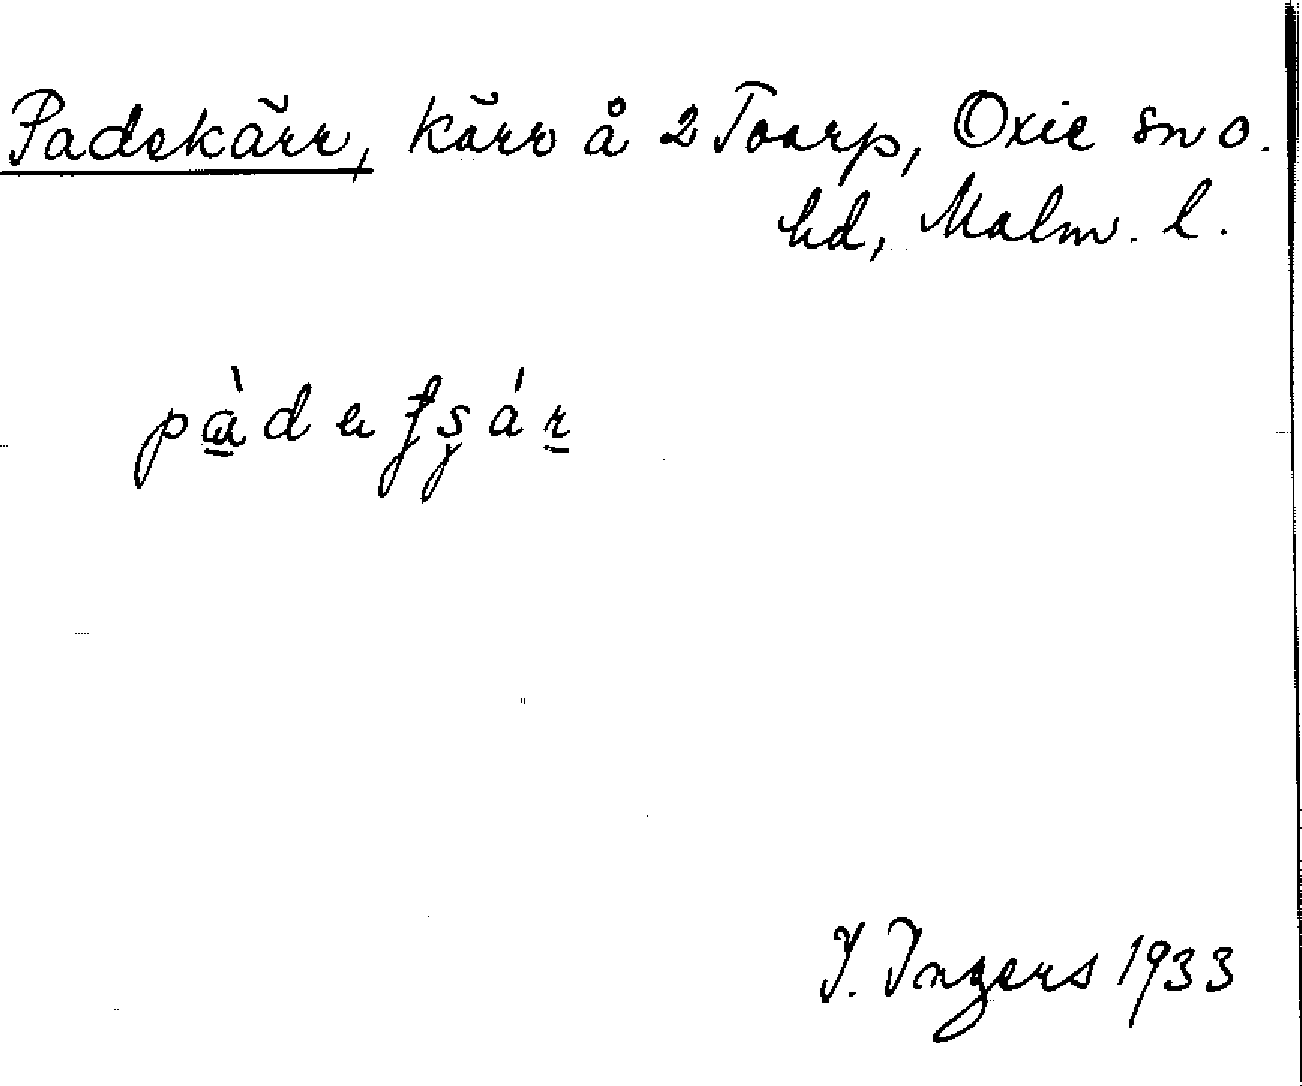 Padekärr, kärr å 2 Toarp, Oxie sn o.
hd, Malm. l.
I. Ingers 1933